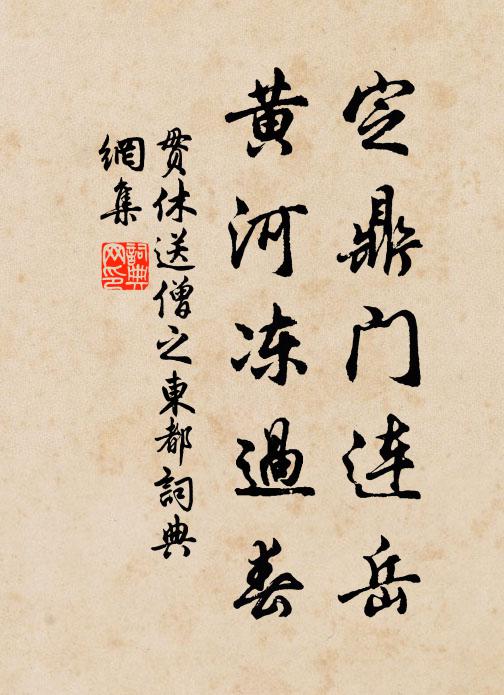 定鼎门连岳
黄河冻過春
贯休送僧之東都詞典
網集
詞典
网印